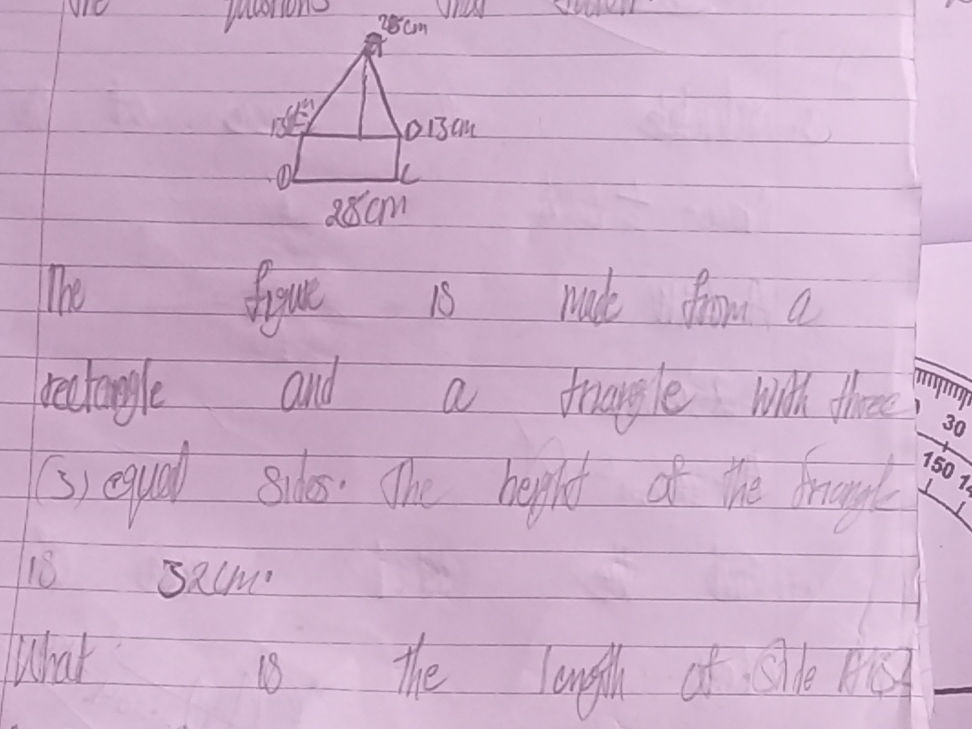 questions
28cm
13cm
D 13cm
D C
28cm
The figure is made from a
rectangle and a triangle with three
(3) equal sides. The height of the triangle
is 32cm.
What is the length of side
30
150